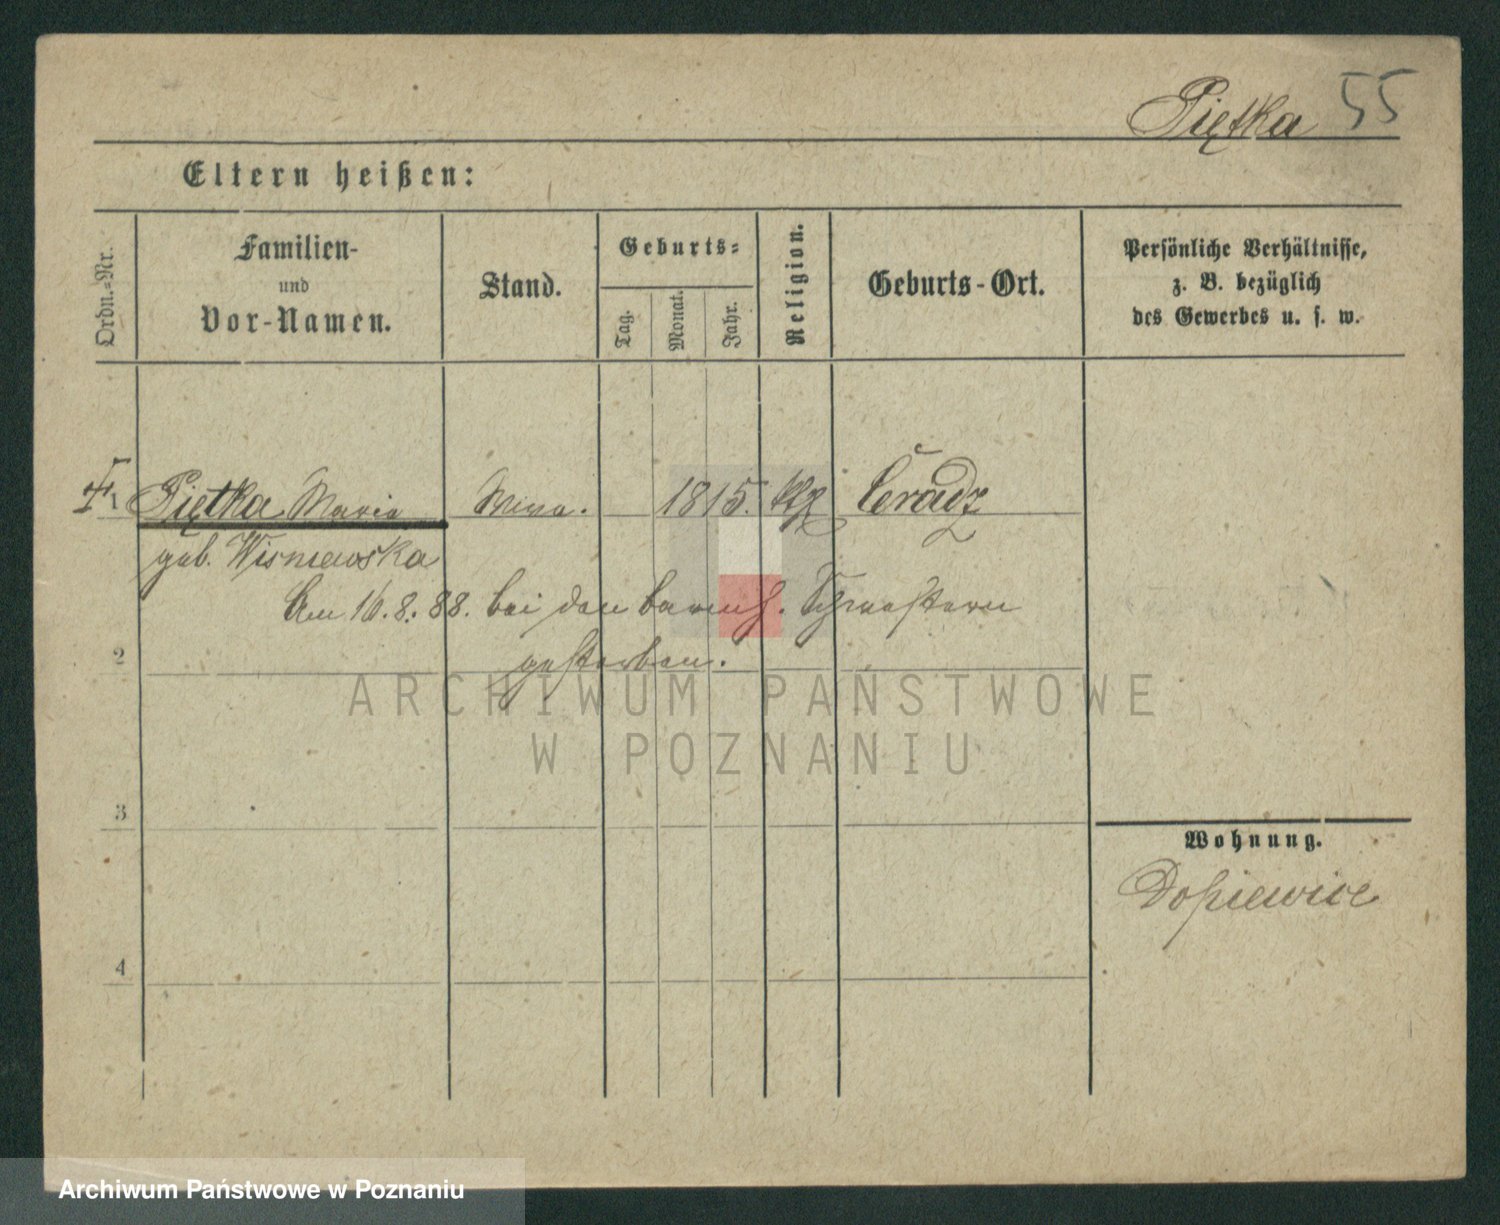 Piętka 55
Eltern heißen:
Ordn.-Nr.
Familien-
und
Vor-Namen.
Stand.
Geburts-
Tag.
Monat.
Jahr.
Religion.
Geburts-Ort.
Persönliche Verhältnisse,
z. B. bezüglich
des Gewerbes u. s. w.
1 Piętka Maria Wwa. 1815. ktg Ceradz
geb. Wisniewska
Am 16.8.88. bei den barmh. Schwestern
gestorben.
2
ARCHIWUM PAŃSTWOWE
W POZNANIU
3
Wohnung.
Dopiewice
4
Archiwum Państwowe w Poznaniu